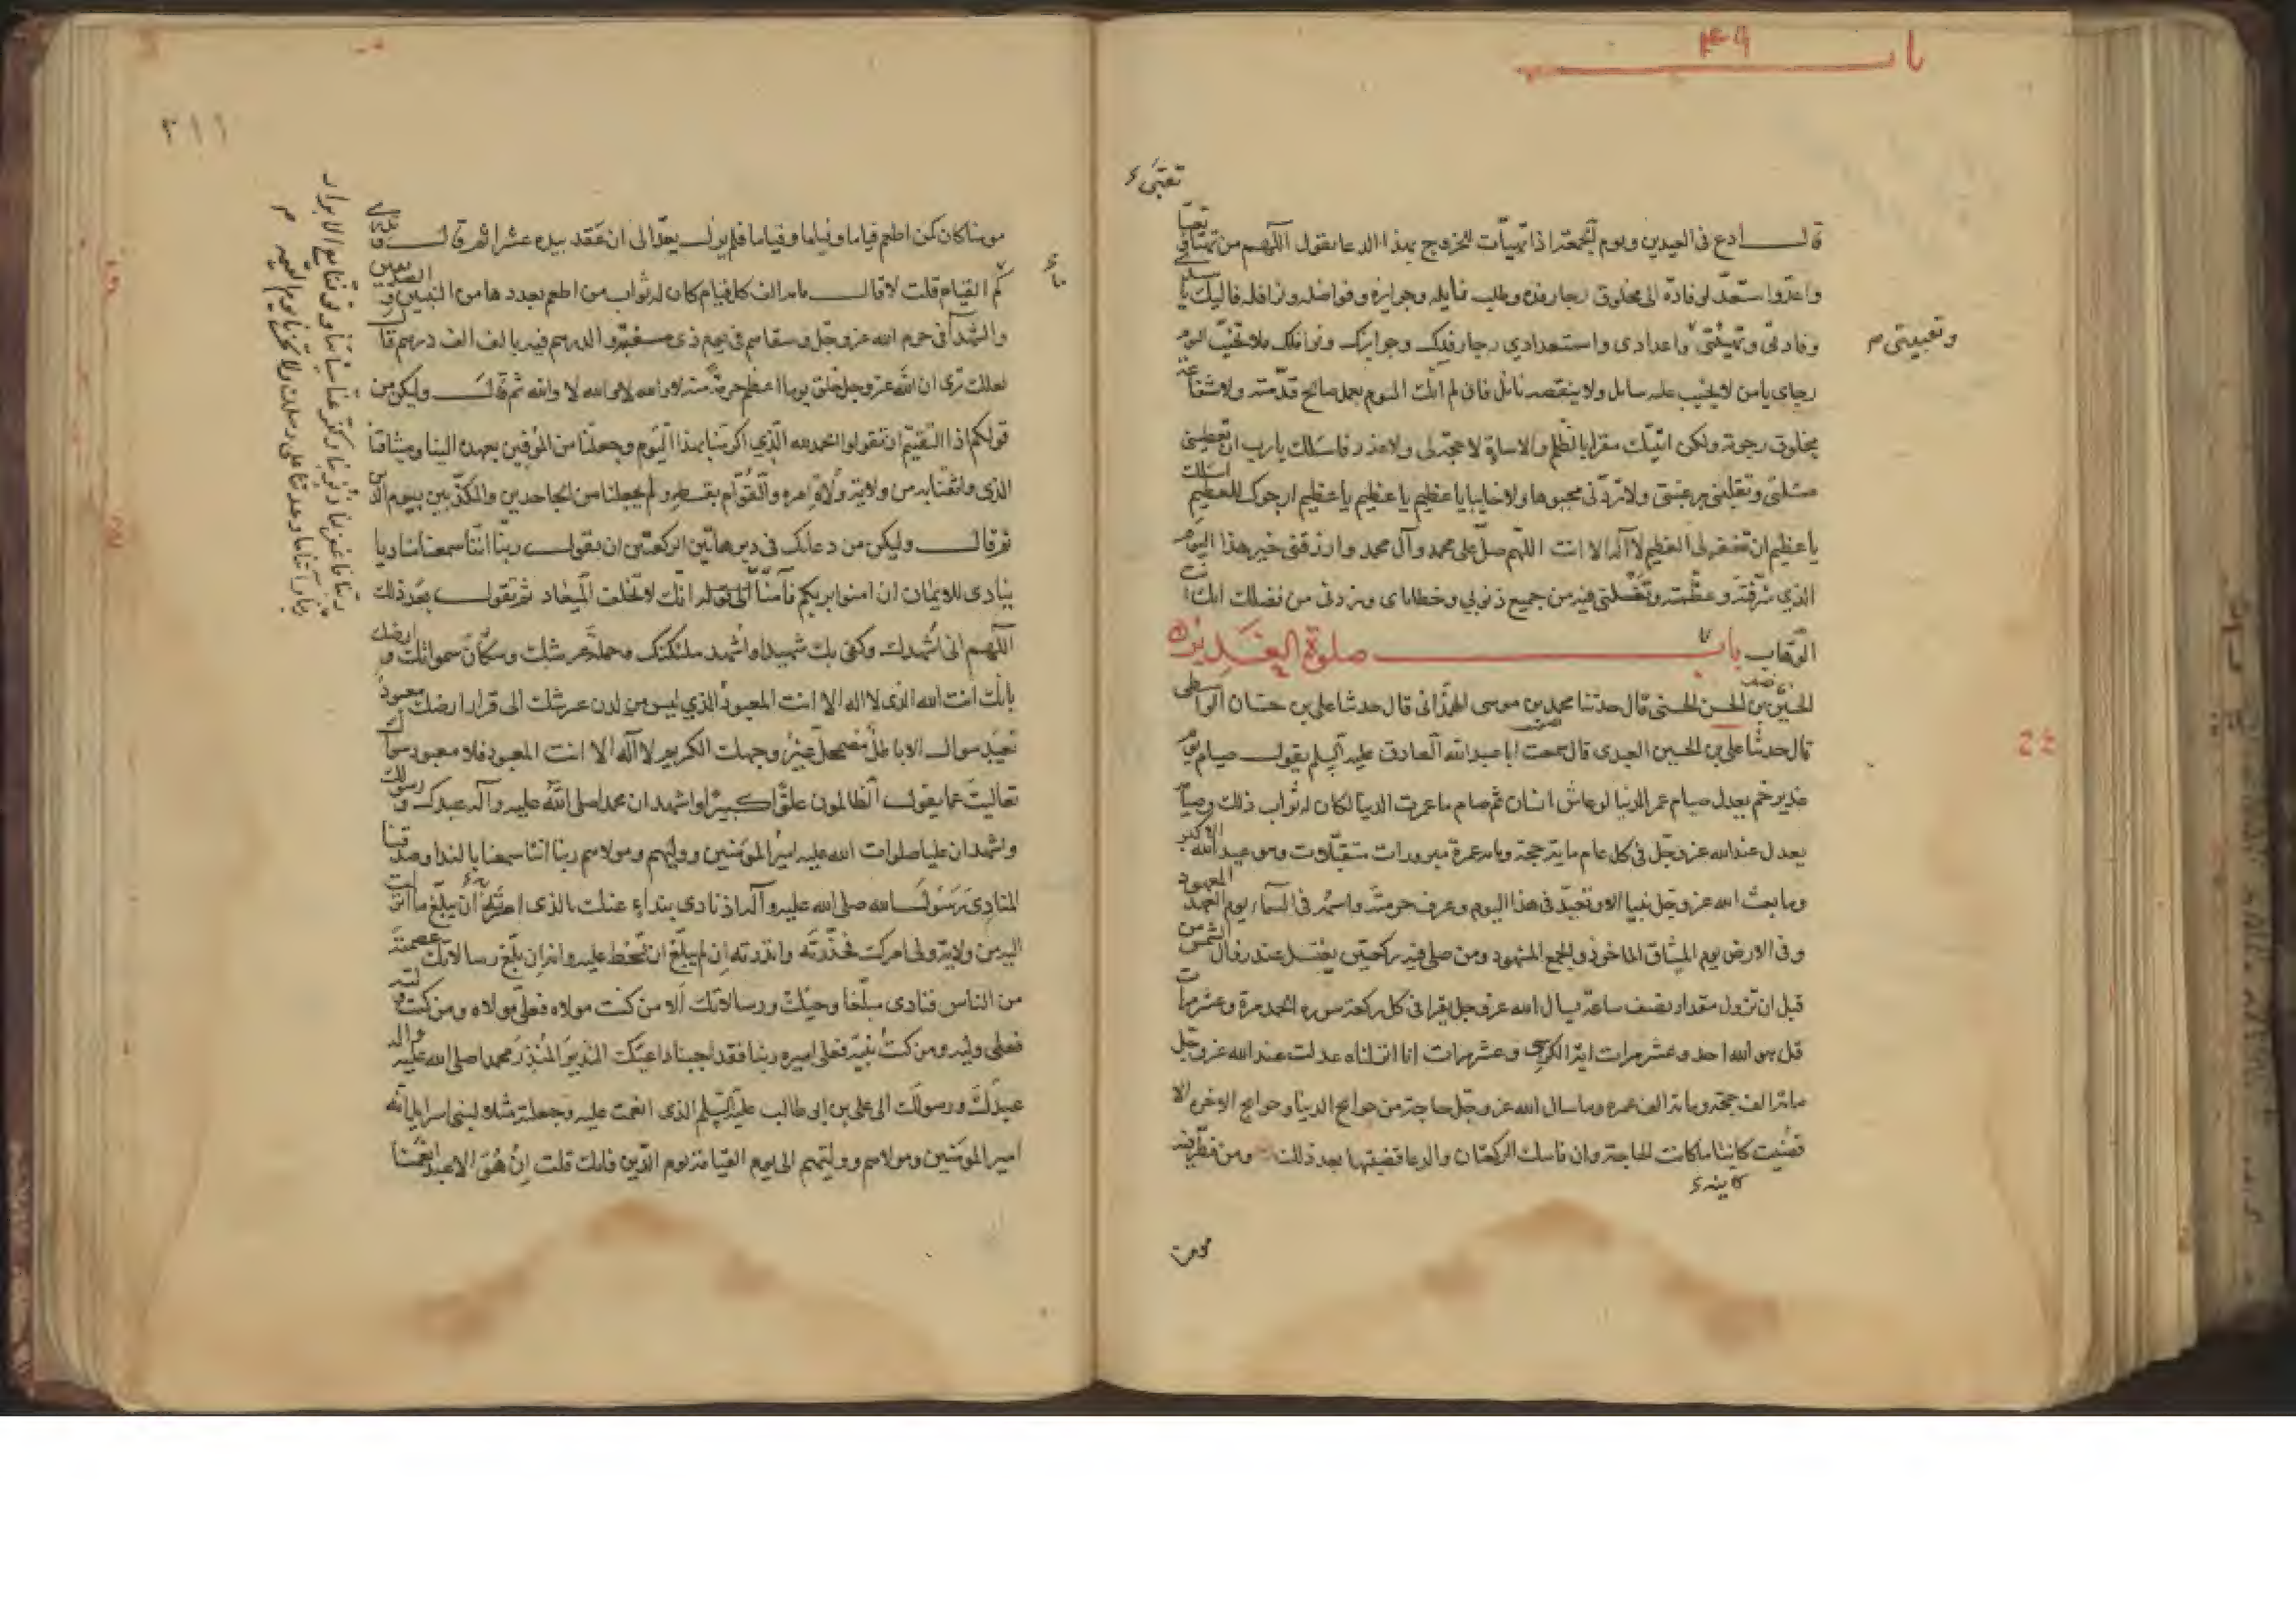 باب ٤٩
تعبّى
قال ادع فى العيدين ويوم الجمعة اذا تهيّأت للخروج بهذا الدعا يقول اللهم من تهيّا فى تعبّا
واعدّ واستعدّ لوفادة الى مخلوق رجا رفده وطلب نايله وجوايزه وفواضله ونوافله فاليك يا سيدى
وفادتى وتهيئتى واعدادى واستعدادي رجا رفدك وجوايزك ونوافلك فلا تخيّب اليوم
وتعبيتى
رجاى يا من لا يخيب عليه سايل ولا ينقصه نائل فانى لم اتك اليوم بعمل صالح قدّمته ولا شفاعة
مخلوق رجوته ولكن اتيتك مقرا بالظلم والاساءة لا حجة لى ولا عذر فاسئلك يارب ان تعطينى
مسئلتى وتقلبنى برغبتى ولا تردّنى مجبوها ولا خايبا يا عظيم يا عظيم يا عظيم ارجوك للعظيم اسئلك
يا عظيم ان تغفر لى العظيم لا اله الا انت اللهم صل على محمد وآل محمد وارزقنى خير هذا اليوم
الذي شرّفته وعظّمته وتغسلنى فيه من جميع ذنوبي وخطاياى وزدنى من فضلك انك انت
الوهاب باب صلوة الغدير
الحسين بن الحسن الحسنى قال حدثنا محمد بن موسى الهمدانى قال حدثنا على بن حسان الواسطى
قال حدثنا على بن الحسين العبدى قال سمعت ابا عبد الله الصادق عليه السلم يقول صيام يوم
غدير خم يعدل صيام عمر الدنيا لو عاش انسان ثم صام ما عمرت الدنيا لكان له ثواب ذلك وصيامه
يعدل عند الله عز وجل فى كل عام ماية حجة وماية عمرة مبرورات متقبلات وهو عيد الله الاكبر
وما بعث الله عز وجل نبيا الا وتعيّد فى هذا اليوم وعرف حرمته واسمه فى السماء يوم العهد المعهود
وفى الارض يوم الميثاق الماخوذ والجمع المشهود ومن صلى فيه ركعتين يغتسل عند زوال الشمس من
قبل ان تزول مقدار نصف ساعة يسال الله عز وجل يقرا فى كل ركعة سورة الحمد مرة وعشر مرات
قل هو الله احد وعشر مرات اية الكرسى وعشر مرات انا انزلناه عدلت عند الله عز وجل
ماية الف حجة وماية الف عمرة وما سال الله عز وجل حاجة من حوايج الدنيا وحوايج الاخرة الا
قضيت كاينا ماكانت الحاجة وان فاتتك الركعتان والدعا قضيتها بعد ذلك ومن فطّر فيه
كاينة
مومنا
٢١١
مومنا كان كمن اطعم فياما وفياما وفياما فلم يزل يعدّ الى ان عقد بيده عشرا ثم قال
كم الفيام قلت لا قال ماية الف كل فيام كان له ثواب من اطعم بعددها من النبيين والصديقين
والشهدآ فى حرم الله عز وجل وسقاهم فى يوم ذى مسغبة والدرهم فيه بالف الف درهم قال
لعلك ترى ان الله عز وجل خلق يوما اعظم حرمة منه لا والله لا والله لا والله ثم قال وليكن من
قولكم اذا التقيتم ان تقولوا الحمد لله الذي اكرمنا بهذا اليوم وجعلنا من الموفين بعهده الينا وميثاقنا
الذى واثقنا به من ولاية ولاة امره والقوام بقسطه ولم يجعلنا من الجاحدين والمكذبين بيوم الدين
ثم قال وليكن من دعائك فى دبر هاتين الركعتين ان تقول ربنا اننا سمعنا مناديا
ينادى للايمان ان امنوا بربكم فآمنا الى قوله انك لا تخلف الميعاد ثم تقول بعد ذلك
اللهم انى اشهدك وكفى بك شهيدا واشهد ملئكتك وحملة عرشك وسكان سمواتك وارضك
بانك انت الله الذى لا اله الا انت المعبود الذي ليس من لدن عرشك الى قرار ارضك معبود
تعبد سواك الا باطل مضمحل غير وجهك الكريم لا اله الا انت المعبود فلا معبود سواك
تعاليت عما يقول الظالمون علوا كبيرا واشهد ان محمدا صلى الله عليه وآله عبدك ورسولك
واشهد ان عليا صلوات الله عليه امير المومنين ووليهم ومولاهم ربنا اننا سمعنا بالندا وصدقنا
المنادى رسول الله صلى الله عليه وآله اذ نادى بنداء عنك بالذى امرته ان يبلغ ما انزلت
اليه من ولاية ولى امرك فحذرته وانذرته ان لم يبلغ ان تسخط عليه وانه ان بلغ رسالاتك عصمته
من الناس فنادى مبلغا وحيك ورسالاتك الا من كنت مولاه فعلى مولاه ومن كنت وليه
فعلى وليه ومن كنت نبيه فعلى اميره ربنا فقد اجبنا داعيك النذير المنذر محمدا صلى الله عليه وآله
عبدك ورسولك الى على بن ابى طالب عليه السلم الذى انعمت عليه وجعلته مثلا لبنى اسرايل انه
امير المومنين ومولاهم ووليهم الى يوم القيامة يوم الدين فانك قلت ان هو الا عبد انعمنا
ربنا فاغفر لنا ذنوبنا وكفر عنا سيئاتنا وتوفنا مع الابرار
ربنا وآتنا ما وعدتنا على رسلك ولا تخزنا يوم القيمة